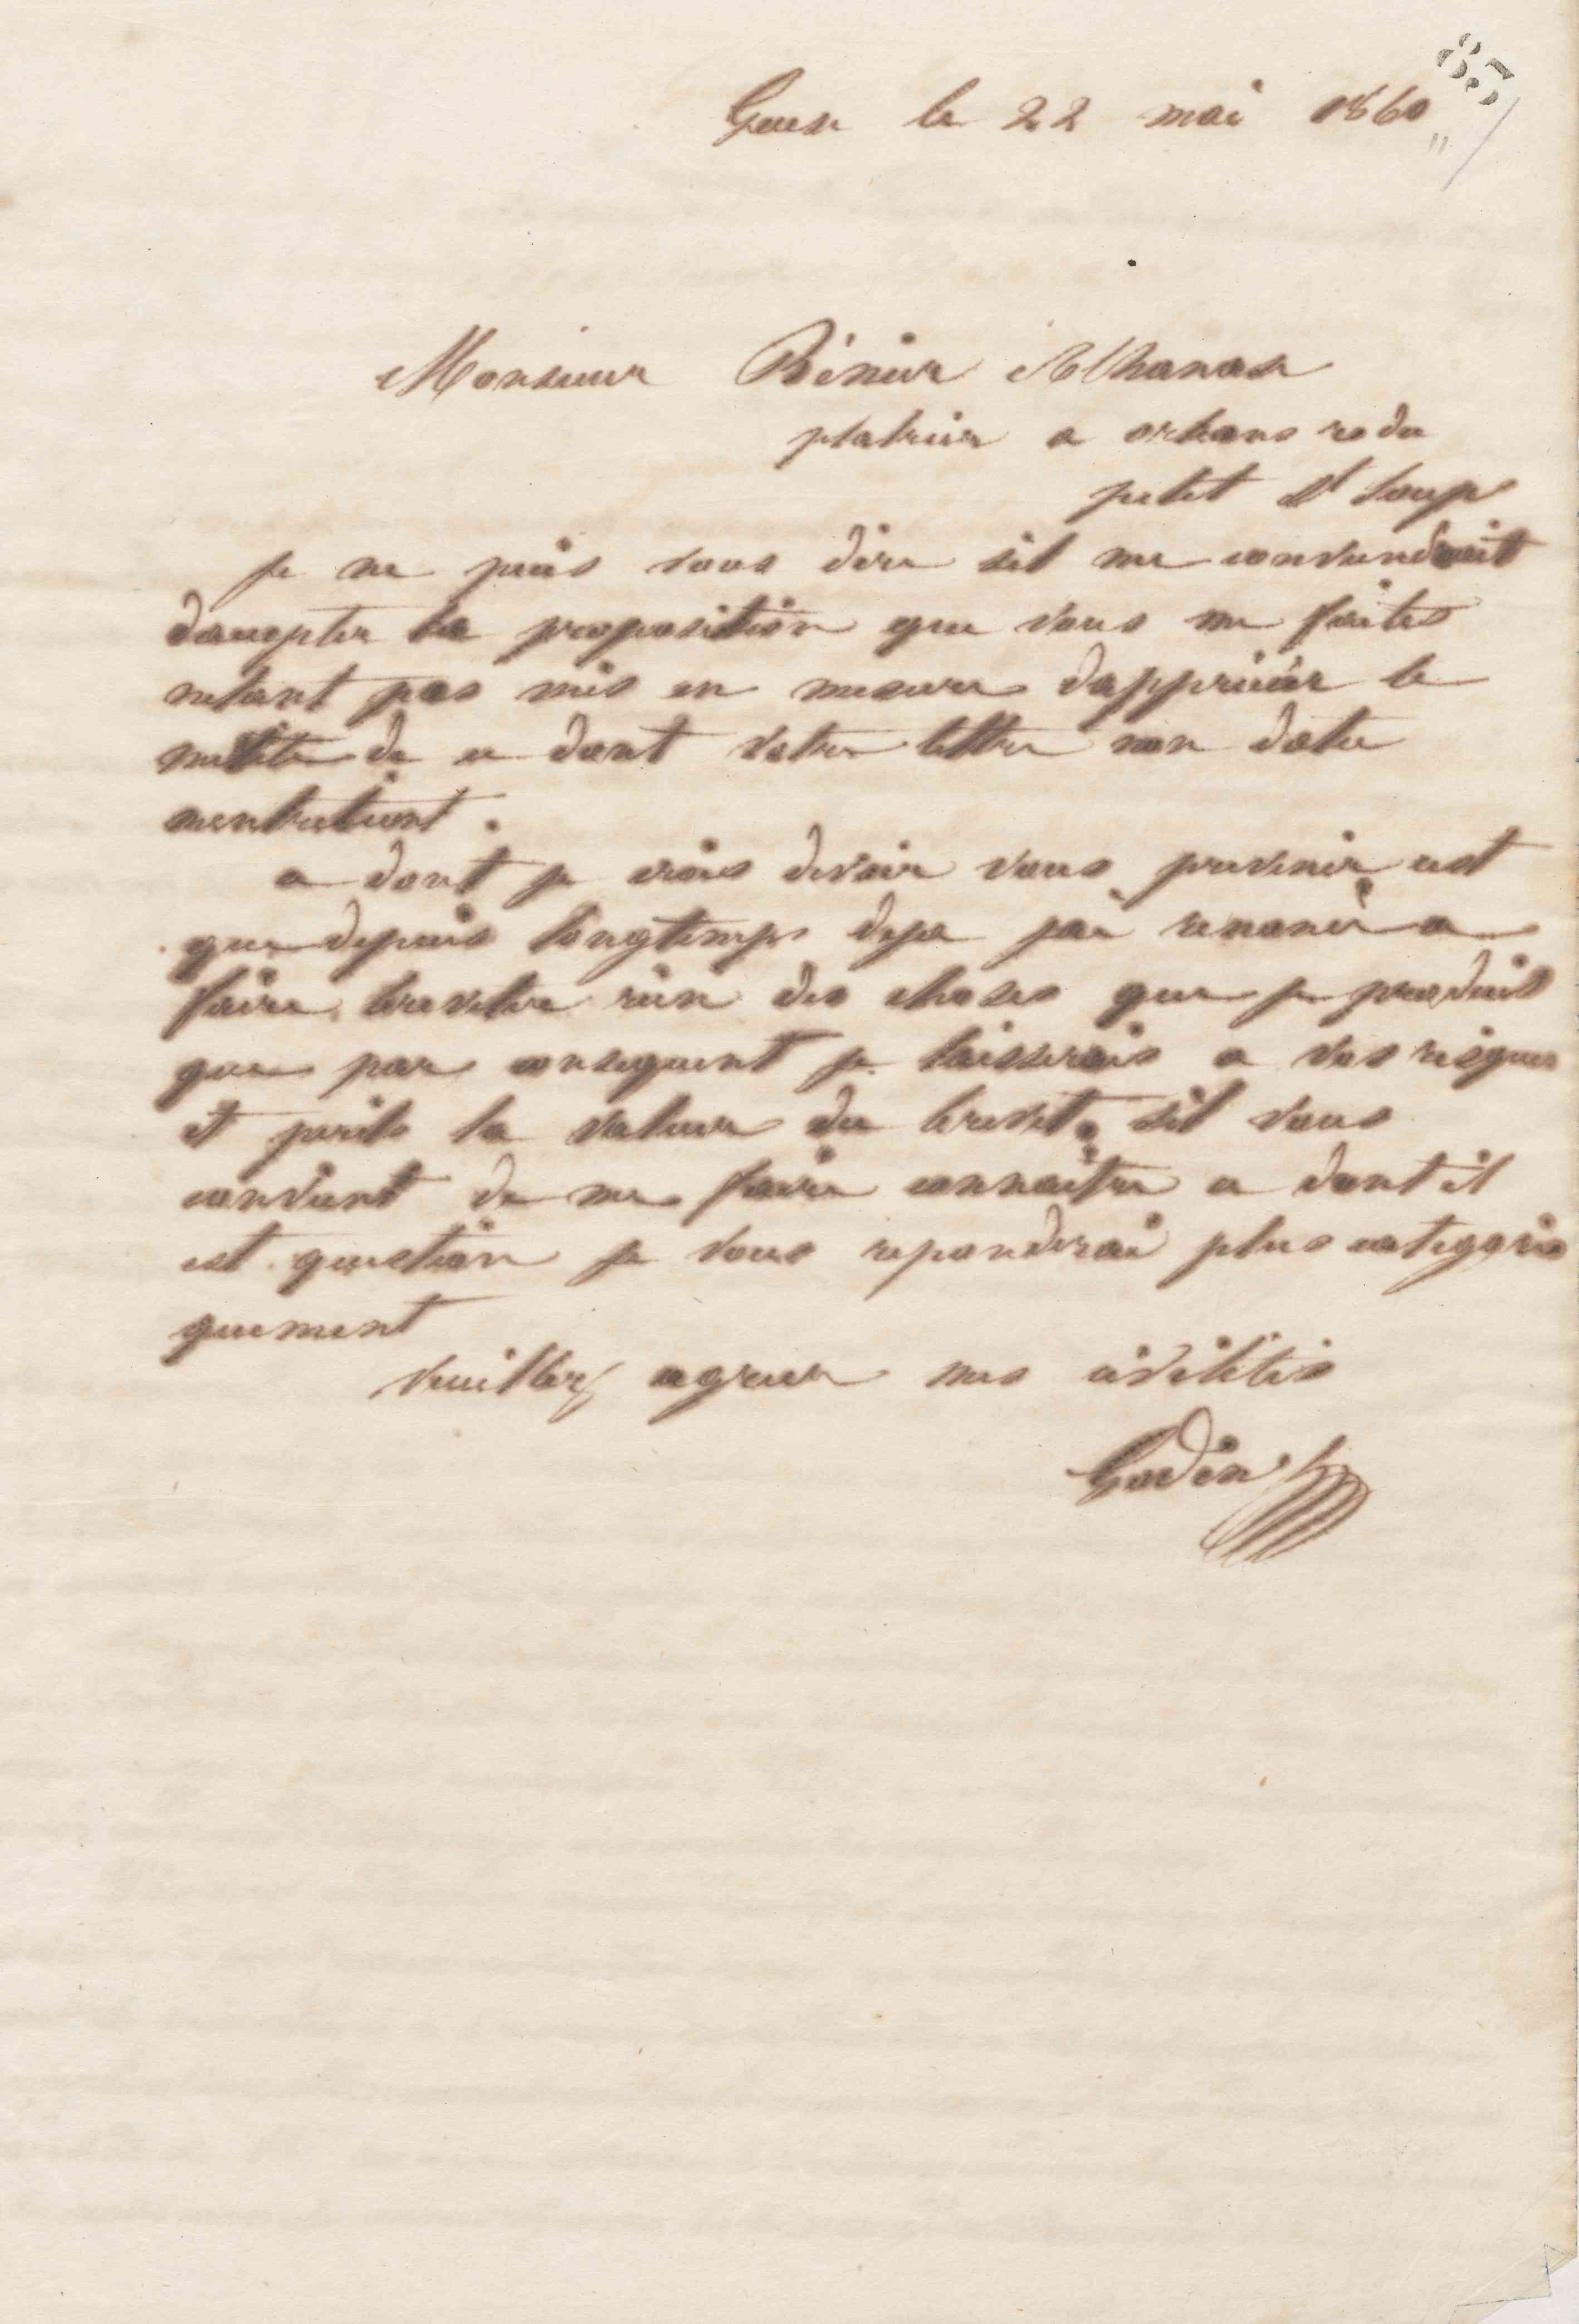 85
Guise le 22 mai 1860
Monsieur Bénier Athanase
platrier a orleans re du
petit St Loup
je ne puis vous dire sil me conviendrait
daccepter la proposition que vous me faites
netant pas mis en mesure dapprécier le
mérite de ce dont votre lettre non datée
mentretient.
ce dont je crois devoir vous prevenir est
que depuis longtemps deja jai renoncé a
faire breveter rien des choses que je produit
que par consequent je laisserais a vos risques
et perils la valeur du brevet. sil vous
convient de me faire connaitre ce dont il
est question je vous repondrai plus categori
quement
veuillez agreer mes civilités
Godin